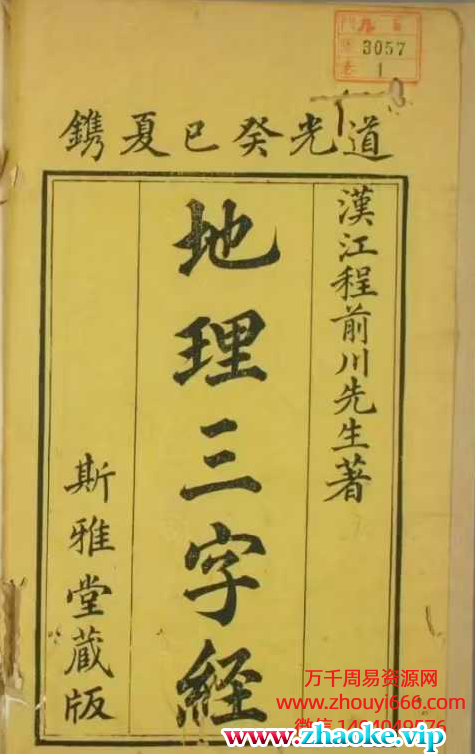 3057
1
道光癸巳夏鐫
漢江程前川先生著
地理三字經
斯雅堂藏版
万千周易资源网
www.zhouyi666.com
www.zhaoke.vip